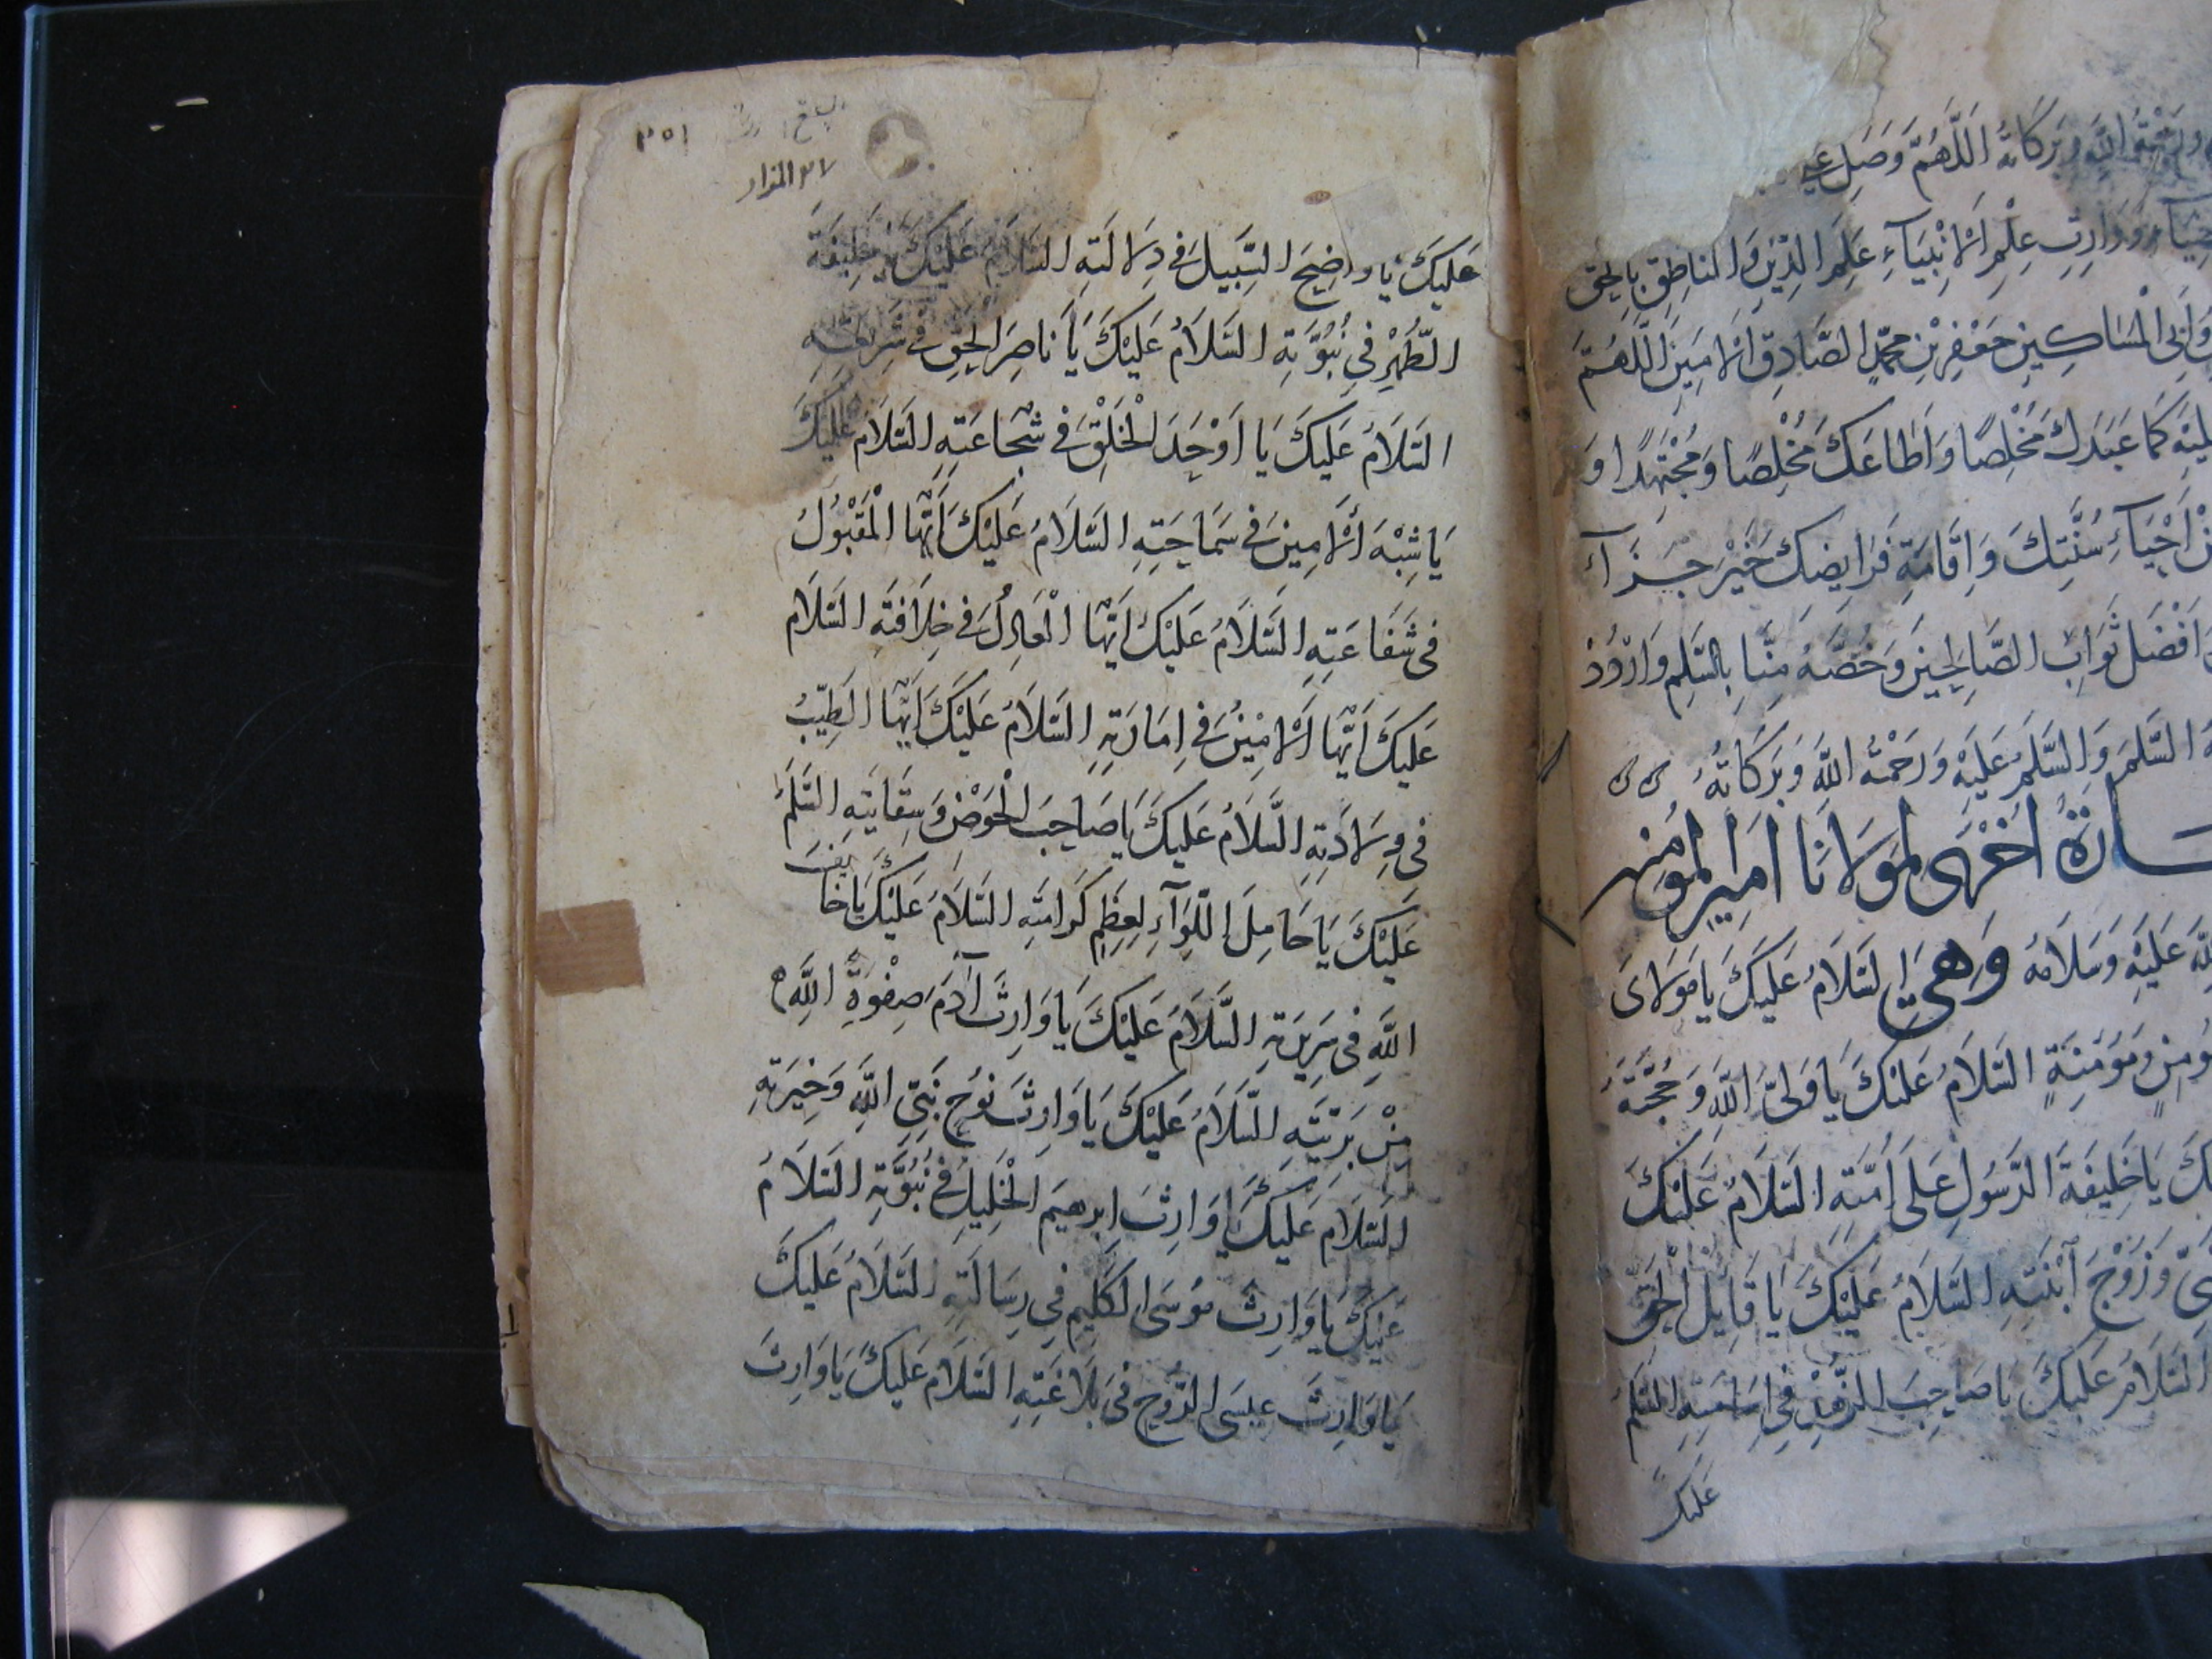 ورحمة الله وبركاته اللهم وصل على
ووارث علم الانبياء علم الدين والناطق بالحق
المساكين جعفر بن محمد الصادق الامين اللهم
كما عبدك مخلصا واطاعك مخلصا ومجتهدا و
احياء سنتك واقامة فرايضك خير جزاء
افضل ثواب الصالحين وخصه منا بالسلم واردد
السلم والسلم عليه ورحمة الله وبركاته
اخرى لمولانا امير المومنين
عليه وسلامه وهى السلام عليك يا مولاى
ومومنة السلام عليك يا ولى الله وحجته
يا خليفة الرسول على امته السلام عليك
وزوج ابنته السلام عليك يا قايل الحق
السلام عليك يا صاحب
عليك
٣٥١
٢٧ المزار
عليك يا واضح السبيل فى دلالته السلام عليك يا خليفة
الطهر فى نبوته السلام عليك يا ناصر الحق فى شريعته
السلام عليك يا اوحد الخلق فى شجاعته السلام عليك
يا شبه الامين فى سماحته السلام عليك ايها المقبول
فى شفاعته السلام عليك ايها العادل فى خلافته السلام
عليك ايها الامين فى امارته السلام عليك ايها الطيب
فى ولادته السلام عليك يا صاحب الحوض وسقايته السلم
عليك يا حامل اللوآء لعظم كرامته السلام عليك يا خايف
الله فى سريرته السلام عليك يا وارث آدم صفوة الله
من بريته السلام عليك يا وارث نوح نبى الله وخيرته
السلام عليك يا وارث ابرهيم الخليل فى نبوته السلام
عليك يا وارث موسى الكليم فى رسالته السلام عليك
يا وارث عيسى الروح فى بلاغته السلام عليك يا وارث